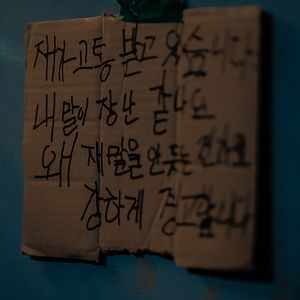 재가 고통 받고 있습니다
내 말이 장난 같나요
왜 재 말을 안듣는 건가요
강하게 경고합니다